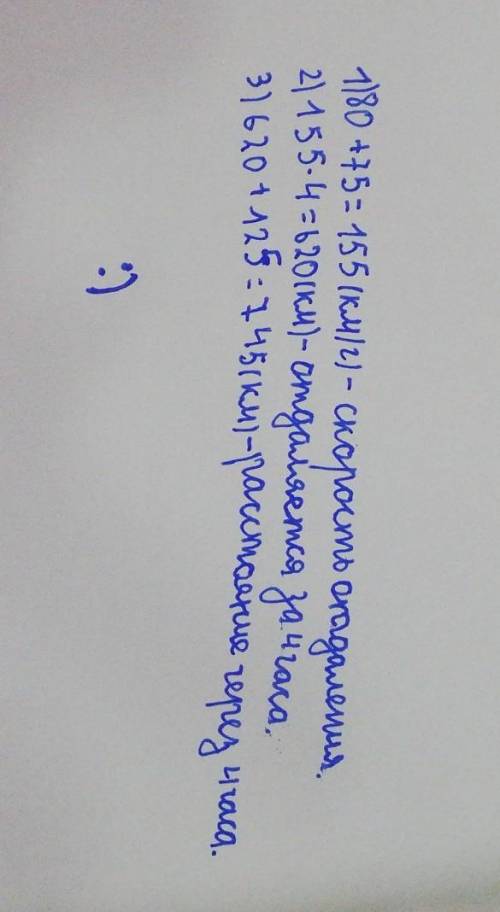 1) 80 + 75 = 155 (км/г) - скорость отдаления.
2) 155 · 4 = 620 (км) - отдаляется за 4 часа.
3) 620 + 125 = 745 (км) - расстояние через 4 часа.
:)